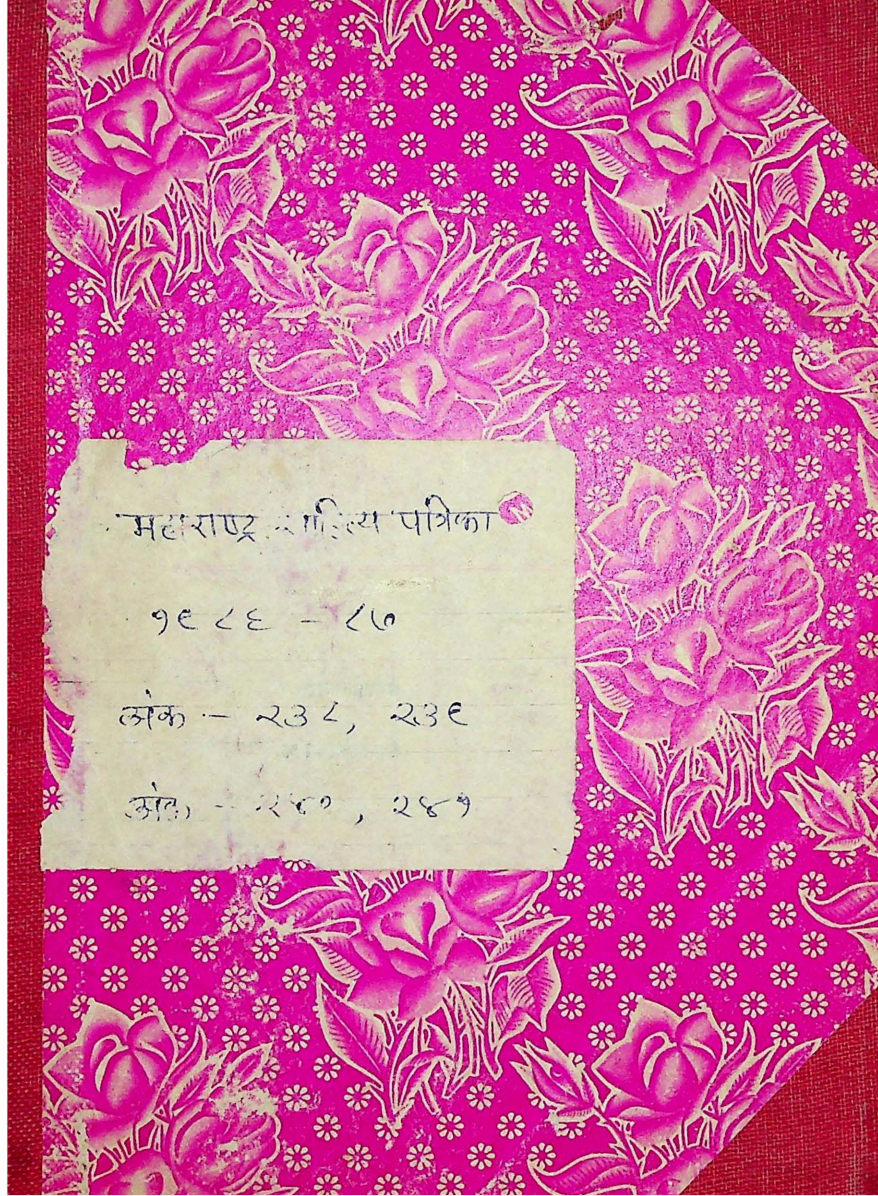 महाराष्ट्र साहित्य पत्रिका
१९८६ - ८७
अंक - २३८, २३९
अंक - २४०, २४१